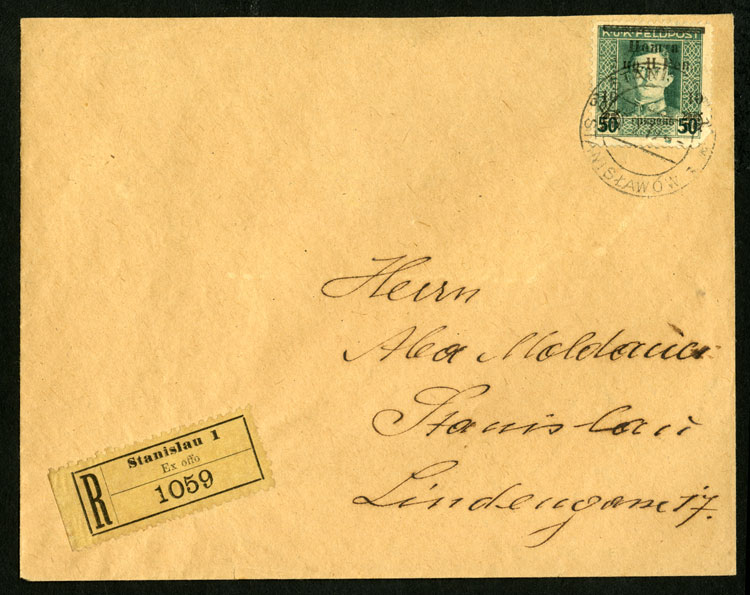 K.u.K. FELDPOST
Пошта
50 50
STANISŁAWÓW
Herrn
Stanislau
Lindengasse 17.
Stanislau 1
Ex offo
R 1059